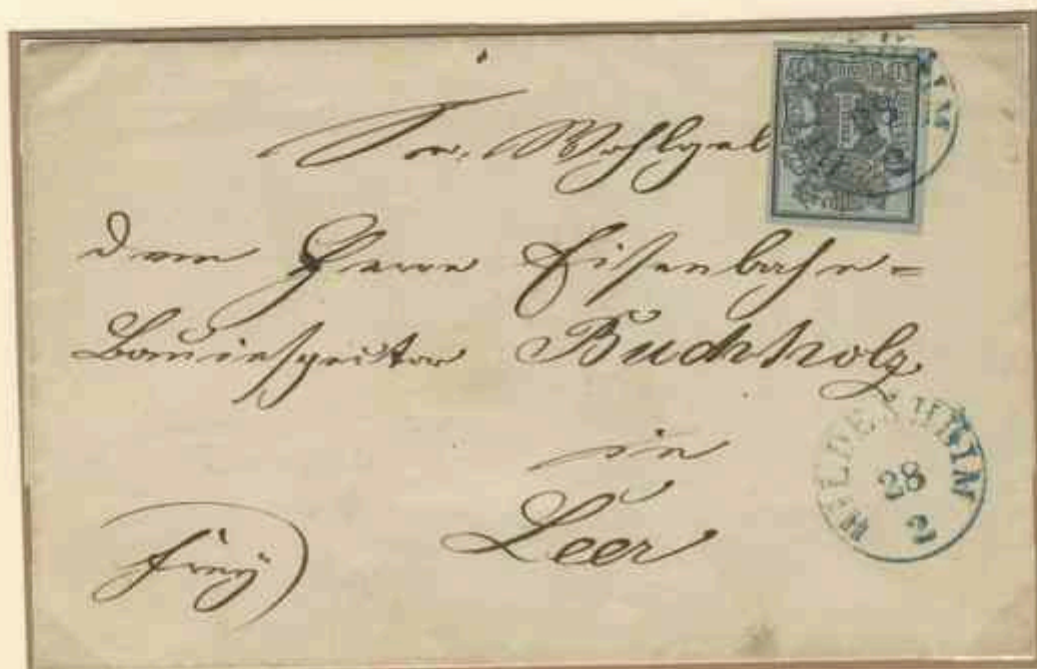 Sr. Wohlgeb
dem Herrn Eisenbahn=
Bauinspector Buchholz
in
Leer
frey
HILDESHEIM
28
2